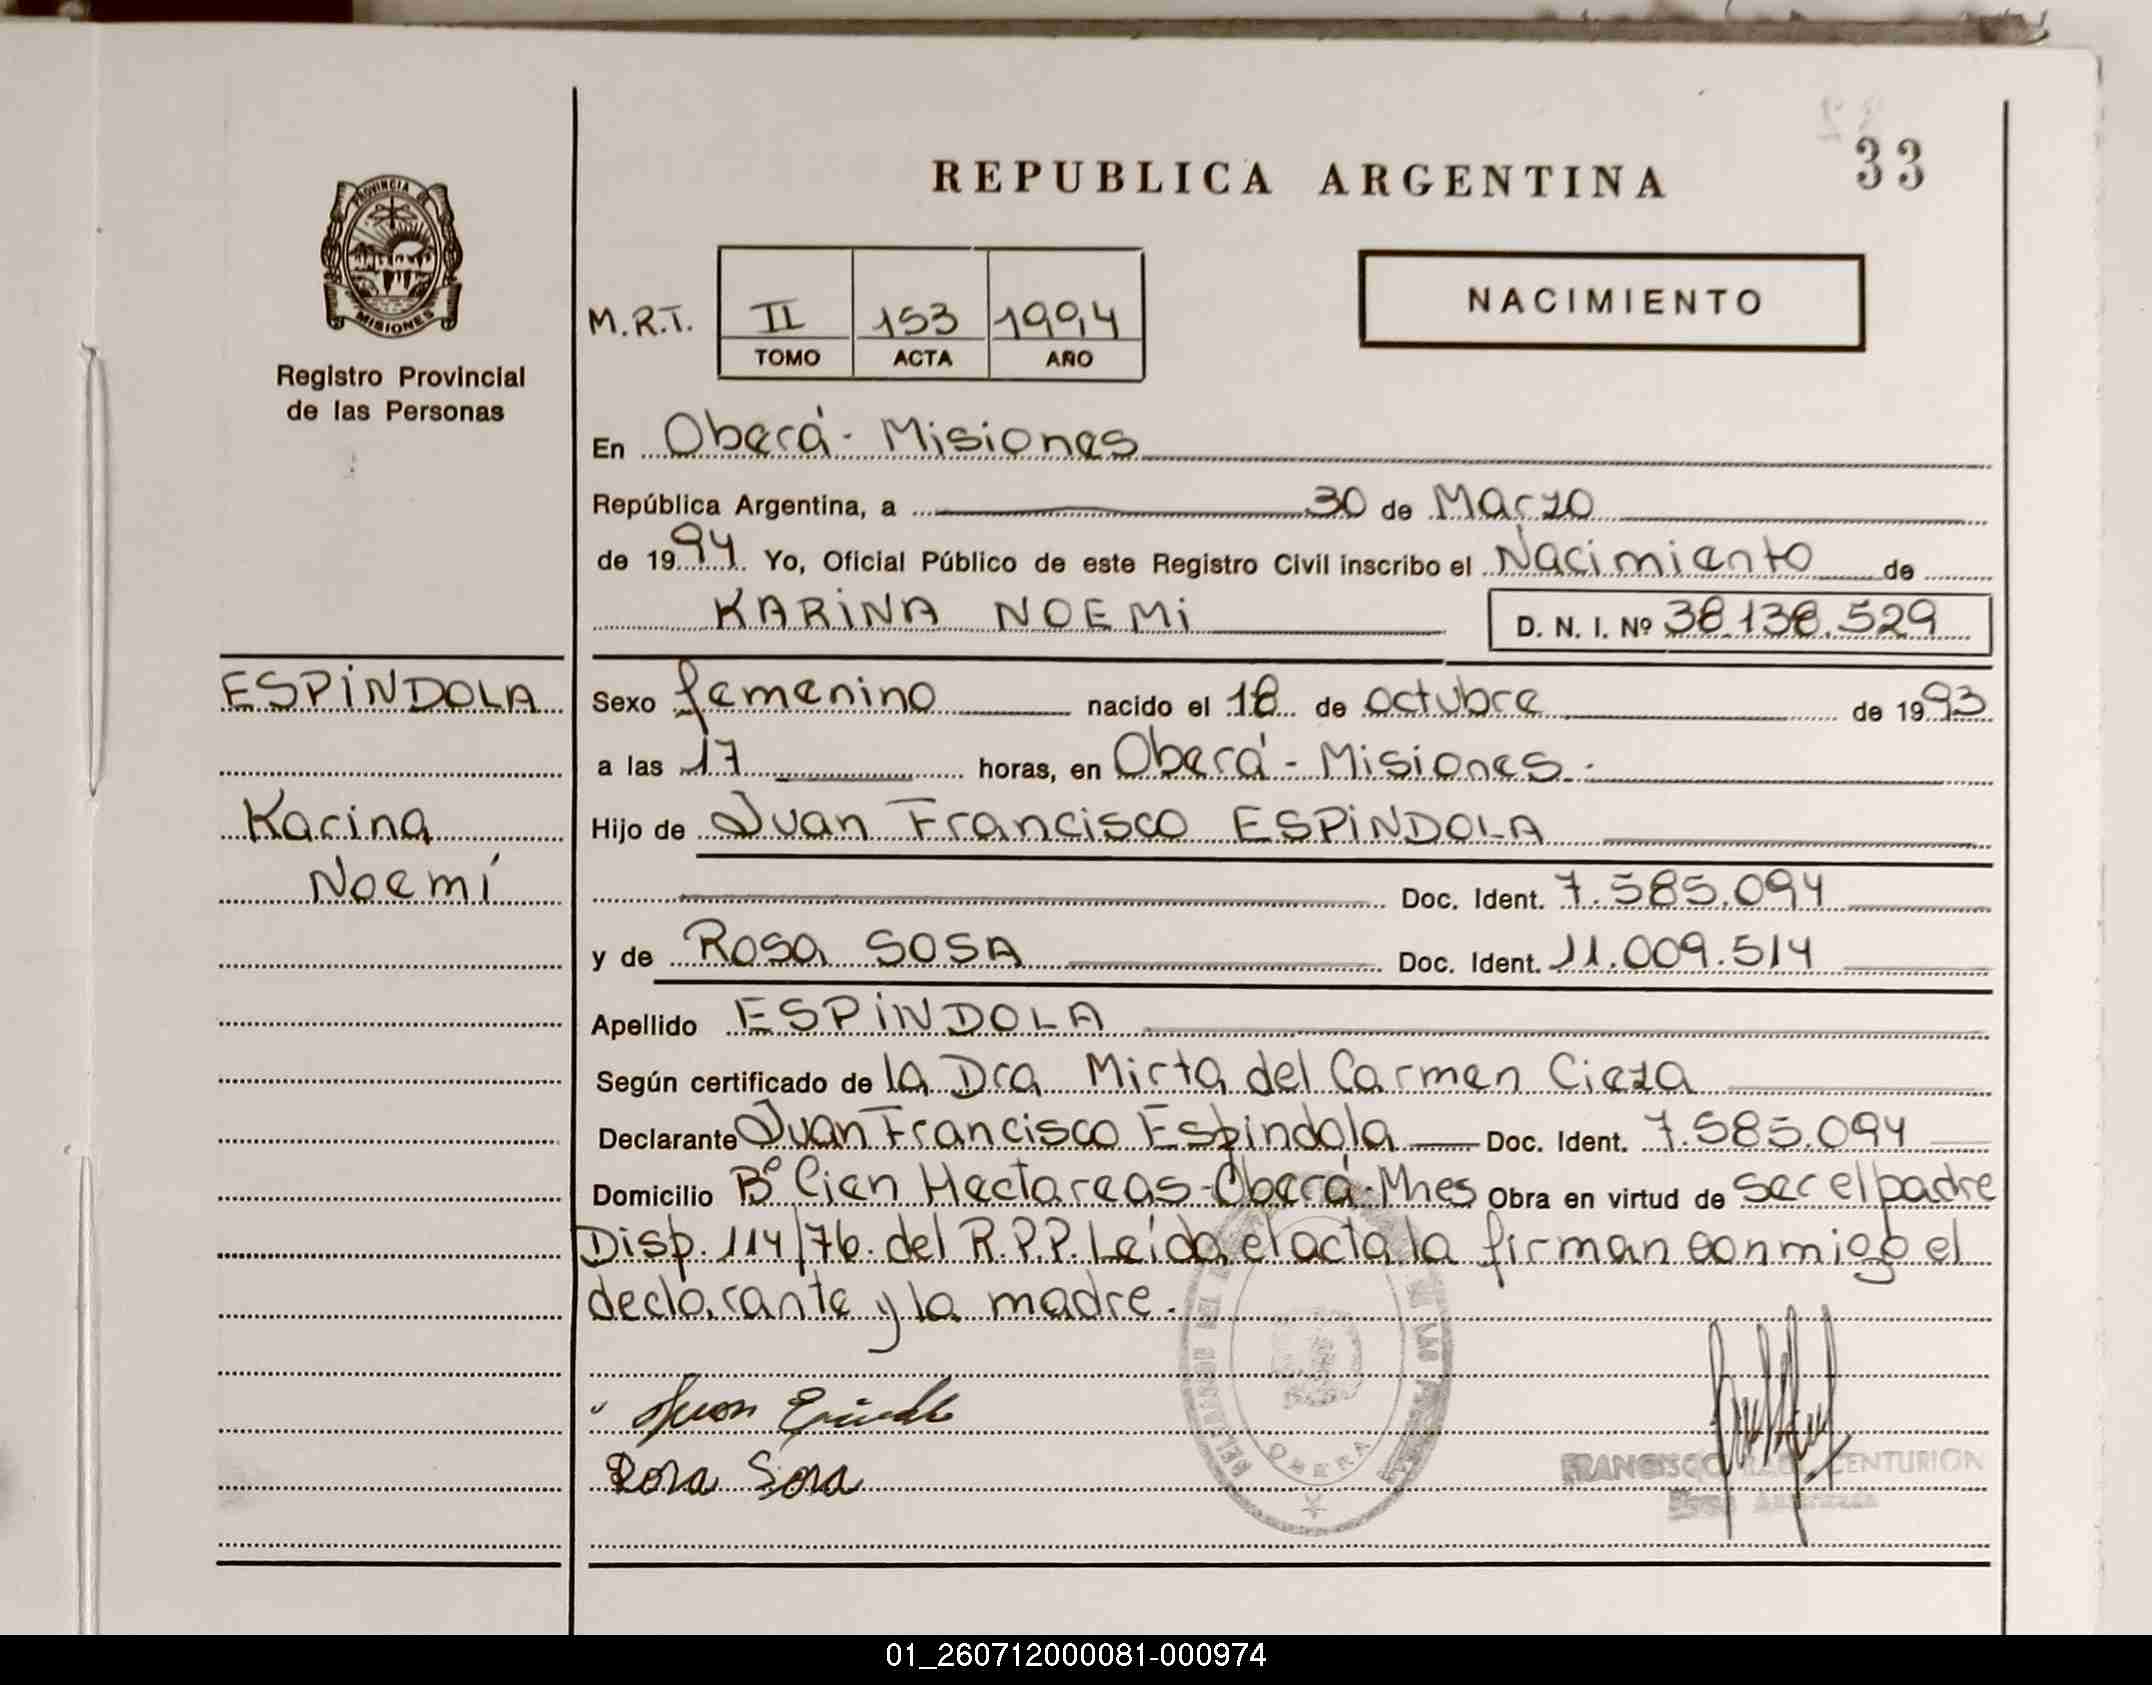 33
REPUBLICA ARGENTINA
PROVINCIA DE
MISIONES
Registro Provincial
de las Personas
NACIMIENTO
M.R.T. II 153 1994
TOMO ACTA AÑO
En Oberá - Misiones
República Argentina, a 30 de Marzo
de 1994 Yo, Oficial Público de este Registro Civil inscribo el Nacimiento de
KARINA NOEMI D. N. I. Nº 38.138.529
ESPINDOLA
Karina
Noemí
Sexo femenino nacido el 18 de octubre de 1993
a las 17 horas, en Oberá - Misiones.
Hijo de Juan Francisco ESPINDOLA
Doc. Ident. 7.585.094
y de Rosa SOSA Doc. Ident. 11.009.514
Apellido ESPINDOLA
Según certificado de la Dra Mirta del Carmen Cieza
Declarante Juan Francisco Espindola Doc. Ident. 7.585.094
Domicilio Bº Cien Hectareas-Oberá-Mnes Obra en virtud de ser el padre
Disp. 114/76. del R.P.P. Leída el acta la firman conmigo el
declarante y la madre.
Juan
Rosa Sosa
OBERA
FRANCISCO RAUL CENTURION
01_260712000081-000974